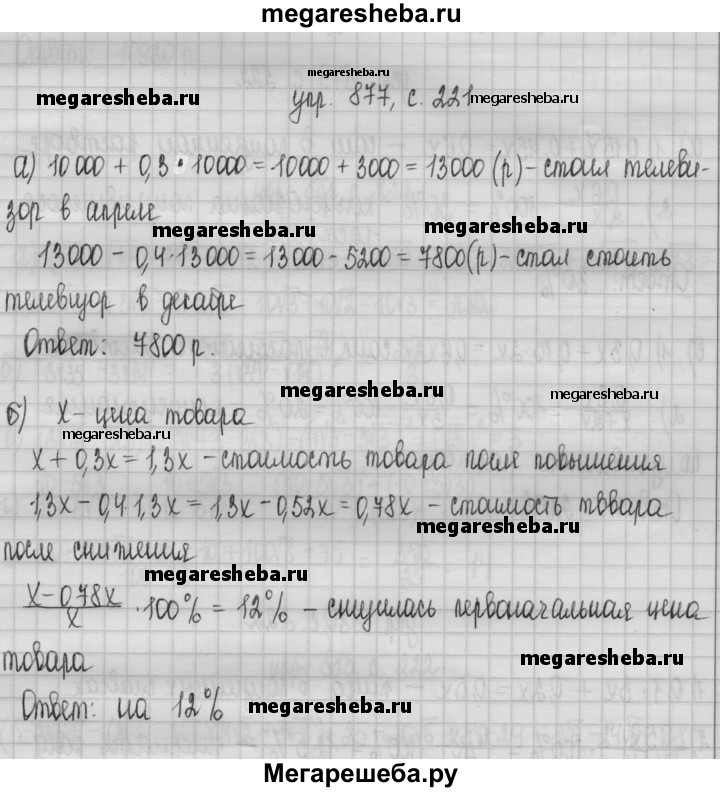 megaresheba.ru
megaresheba.ru
megaresheba.ru упр. 877, с. 221 megaresheba.ru
а) 10 000 + 0,3 · 10000 = 10000 + 3000 = 13000 (р) - стоил телеви-
зор в апреле
megaresheba.ru megaresheba.ru
13000 - 0,4 · 13000 = 13000 - 5200 = 7800 (р) - стал стоить
телевизор в декабре
Ответ: 7800 р.
megaresheba.ru megaresheba.ru
б) х - цена товара
megaresheba.ru
х + 0,3х = 1,3х - стоимость товара после повышения
1,3х - 0,4 · 1,3х = 1,3х - 0,52х = 0,78х - стоимость товара
megaresheba.ru
после снижения
megaresheba.ru
х - 0,78х / х · 100% = 12% - снизилась первоначальная цена
товара
megaresheba.ru
Ответ: на 12% megaresheba.ru
Мегарешеба.ру